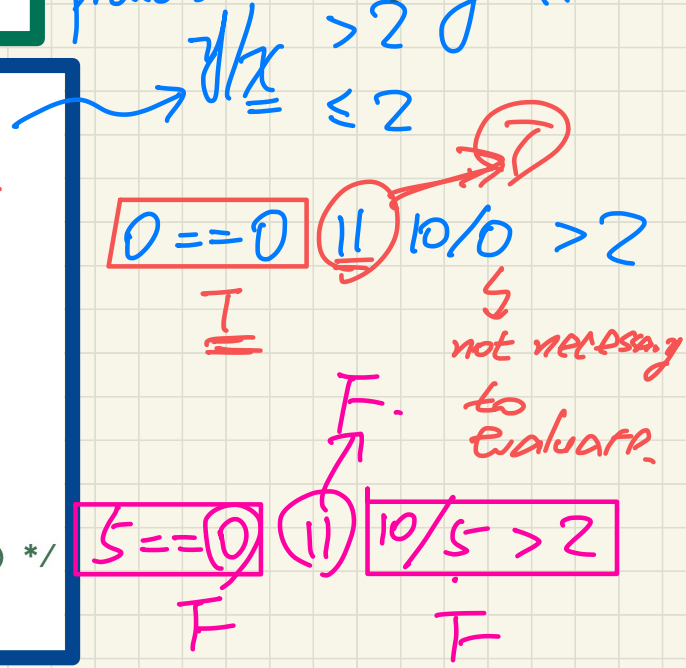 y/x > 2
≤ 2
T
0 == 0 || 10/0 > 2
T
not necessary
to
evaluate.
F.
5 == 0 || 10/5 > 2
) */
F F